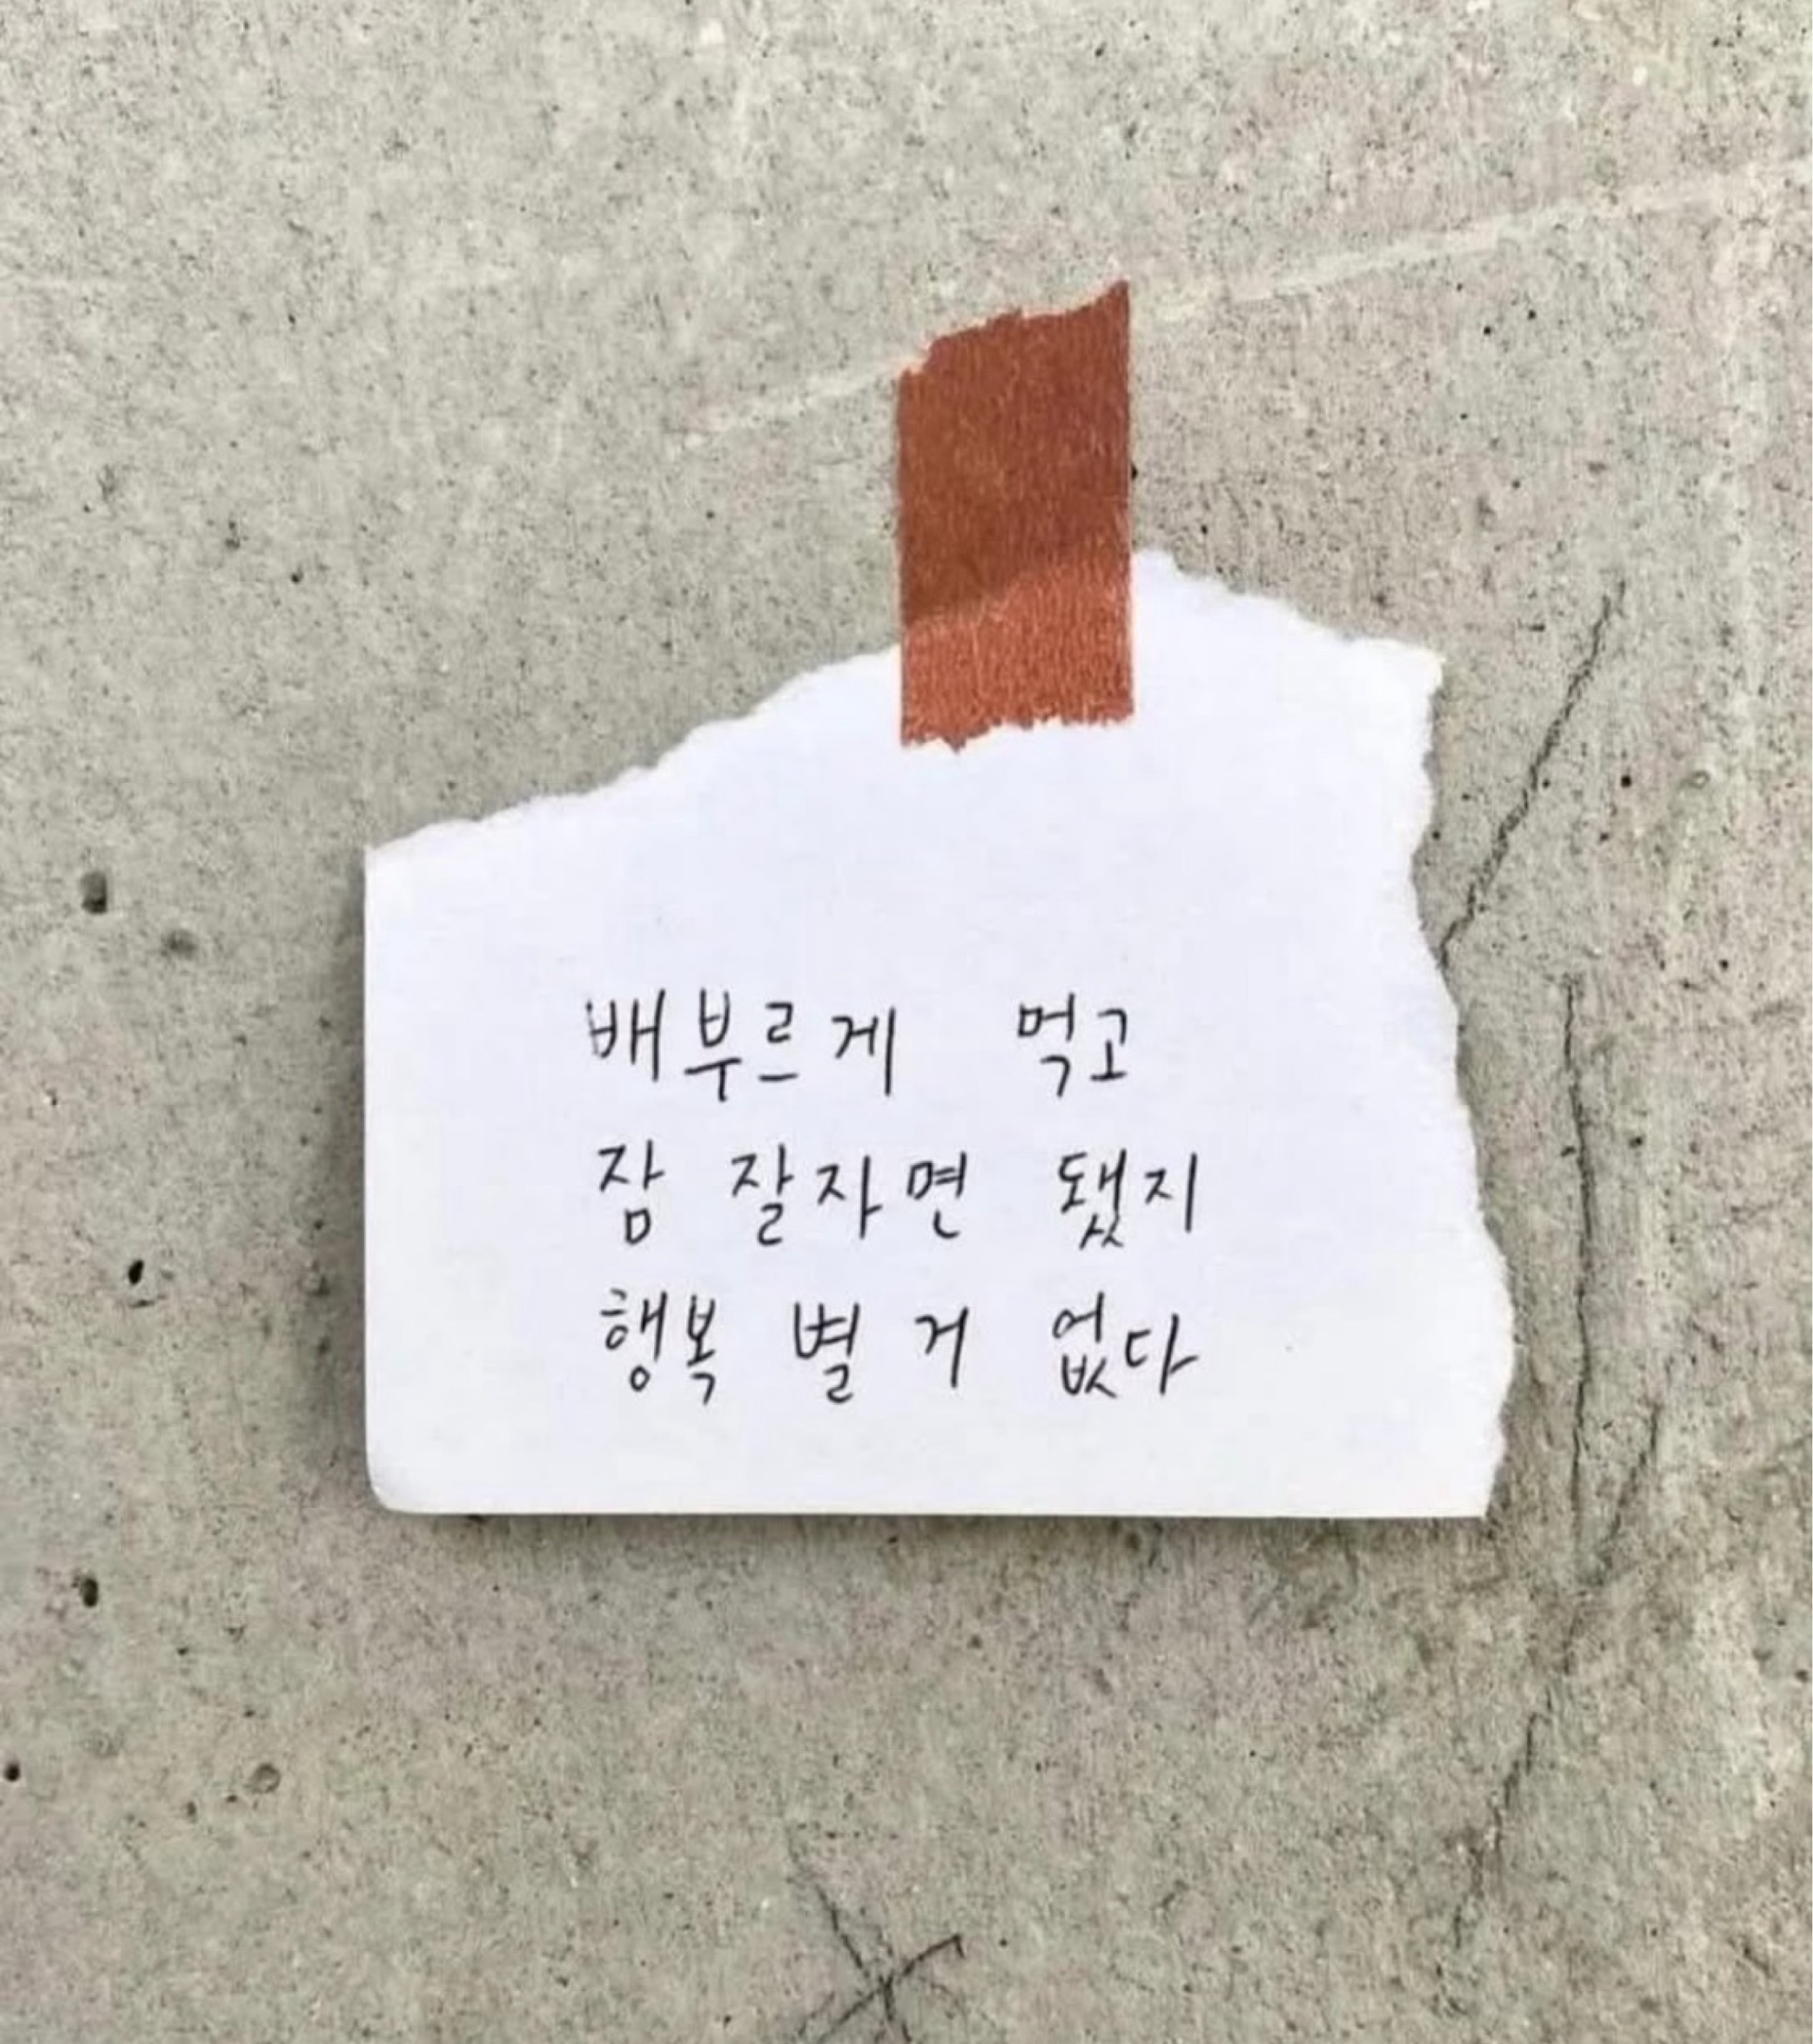 배부르게 먹고
잠 잘자면 됐지
행복 별 거 없다